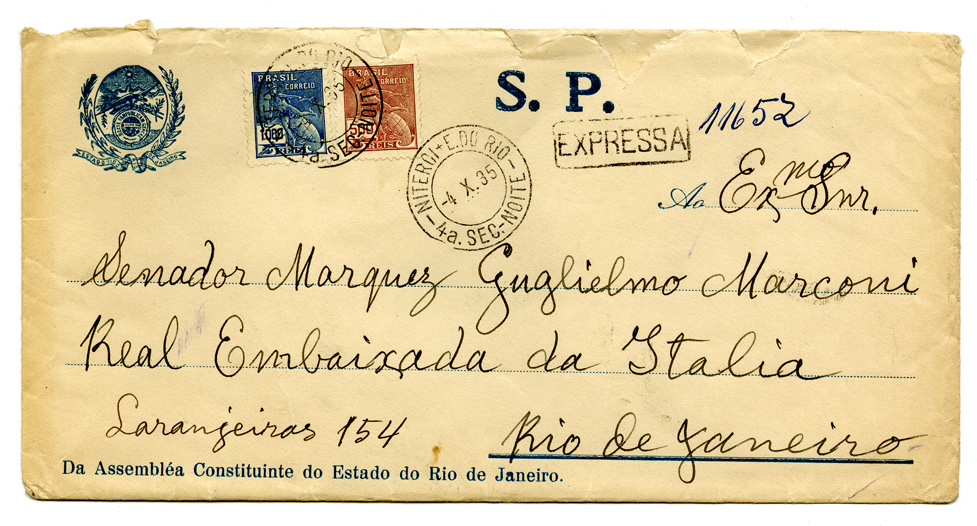 BRASIL
CORREIO
1000
REIS
BRASIL
CORREIO
500
REIS
E. DO RIO
4a. SEC-NOITE
S. P.
EXPRESSA
11652
NITEROI + E. DO RIO - 4a. SEC.-NOITE
-4 X.35
Ao Exmo Snr.
Senador Marquez Guglielmo Marconi
Real Embaixada da Italia
Laranjeiras 154
Rio de Janeiro
Da Assembléa Constituinte do Estado do Rio de Janeiro.